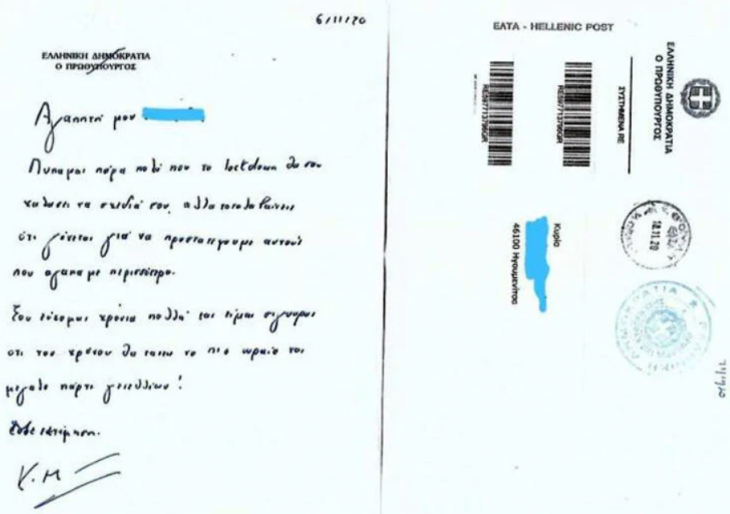 6/11/20
ΕΛΛΗΝΙΚΗ ΔΗΜΟΚΡΑΤΙΑ
Ο ΠΡΩΘΥΠΟΥΡΓΟΣ
Αγαπητή μου
Λυπαμαι πάρα πολύ που το lockdown θα σου
χαλασει τα σχεδιά σου, αλλα καταλαβαίνεις
ότι γίνεται γιά να προστατεψουμε αυτούς
που αγαπαμε περισσότερο.
Σου εύχομαι χρόνια πολλά και είμαι σιγουρος
οτι του χρόνου θα κανεις το πιο ωραίο και
μεγαλο πάρτι γενεθλίων!
Με εκτίμηση.
Κ.Μ
ΕΛΤΑ - HELLENIC POST
ΕΛΛΗΝΙΚΗ ΔΗΜΟΚΡΑΤΙΑ
Ο ΠΡΩΘΥΠΟΥΡΓΟΣ
ΣΥΣΤΗΜΕΝΑ RE
RE597713795GR
RE597713795GR
18.11.20
Κυρία
46100 Ηγουμενίτσα